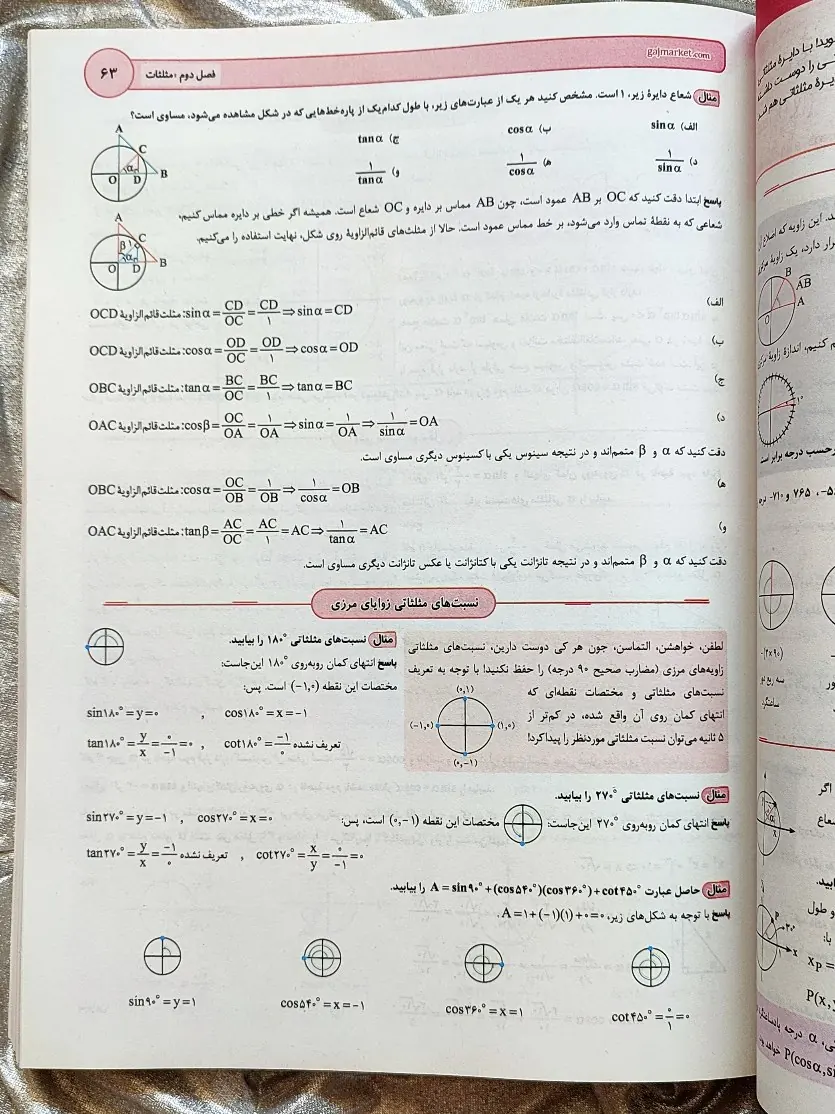 gajmarket.com
فصل دوم : مثلثات
۶۳
مثال شعاع دایرهٔ زیر، ۱ است. مشخص کنید هر یک از عبارت‌های زیر، با طول کدام‌یک از پاره‌خط‌هایی که در شکل مشاهده می‌شود، مساوی است؟
الف) sinα
ب) cosα
ج) tanα
د) ۱/sinα
ه) ۱/cosα
و) ۱/tanα
A
C
α
O D B
پاسخ ابتدا دقت کنید که OC بر AB عمود است، چون AB مماس بر دایره و OC شعاع است. همیشه اگر خطی بر دایره مماس کنیم،
شعاعی که به نقطهٔ تماس وارد می‌شود، بر خط مماس عمود است. حالا از مثلث‌های قائم‌الزاویهٔ روی شکل، نهایت استفاده را می‌کنیم.
A
C
β ۱
α
O D B
الف) مثلث قائم‌الزاویهٔ OCD: sinα = CD/OC = CD/۱ ⇒ sinα = CD
ب) مثلث قائم‌الزاویهٔ OCD: cosα = OD/OC = OD/۱ ⇒ cosα = OD
ج) مثلث قائم‌الزاویهٔ OBC: tanα = BC/OC = BC/۱ ⇒ tanα = BC
د) مثلث قائم‌الزاویهٔ OAC: cosβ = OC/OA = ۱/OA ⇒ sinα = ۱/OA ⇒ ۱/sinα = OA
دقت کنید که α و β متمم‌اند و در نتیجه سینوس یکی با کسینوس دیگری مساوی است.
ه) مثلث قائم‌الزاویهٔ OBC: cosα = OC/OB = ۱/OB ⇒ ۱/cosα = OB
و) مثلث قائم‌الزاویهٔ OAC: tanβ = AC/OC = AC/۱ = AC ⇒ ۱/tanα = AC
دقت کنید که α و β متمم‌اند و در نتیجه تانژانت یکی با کتانژانت یا عکس تانژانت دیگری مساوی است.
نسبت‌های مثلثاتی زوایای مرزی
لطفن، خواهشن، التماسن، جون هر کی دوست دارین، نسبت‌های مثلثاتی
زاویه‌های مرزی (مضارب صحیح ۹۰ درجه) را حفظ نکنید! با توجه به تعریف
نسبت‌های مثلثاتی و مختصات نقطه‌ای که
انتهای کمان روی آن واقع شده، در کم‌تر از
۵ ثانیه می‌توان نسبت مثلثاتی موردنظر را پیدا کرد!
(۰,۱)
(−۱,۰)
(۱,۰)
(۰,−۱)
مثال نسبت‌های مثلثاتی ۱۸۰° را بیابید.
پاسخ انتهای کمان روبه‌روی ۱۸۰° این‌جاست:
مختصات این نقطه (−۱,۰) است. پس:
sin۱۸۰° = y = ۰ , cos۱۸۰° = x = −۱
tan۱۸۰° = y/x = ۰/−۱ = ۰ , cot۱۸۰° = −۱/۰ تعریف نشده
مثال نسبت‌های مثلثاتی ۲۷۰° را بیابید.
پاسخ انتهای کمان روبه‌روی ۲۷۰° این‌جاست: مختصات این نقطه (۰,−۱) است، پس:
sin۲۷۰° = y = −۱ , cos۲۷۰° = x = ۰
tan۲۷۰° = y/x = −۱/۰ تعریف نشده , cot۲۷۰° = x/y = ۰/−۱ = ۰
مثال حاصل عبارت A = sin۹۰° + (cos۵۴۰°)(cos۳۶۰°) + cot۴۵۰° را بیابید.
پاسخ با توجه به شکل‌های زیر، A = ۱ + (−۱)(۱) + ۰ = ۰ .
sin۹۰° = y = ۱
cos۵۴۰° = x = −۱
cos۳۶۰° = x = ۱
cot۴۵۰° = ۰/۱ = ۰